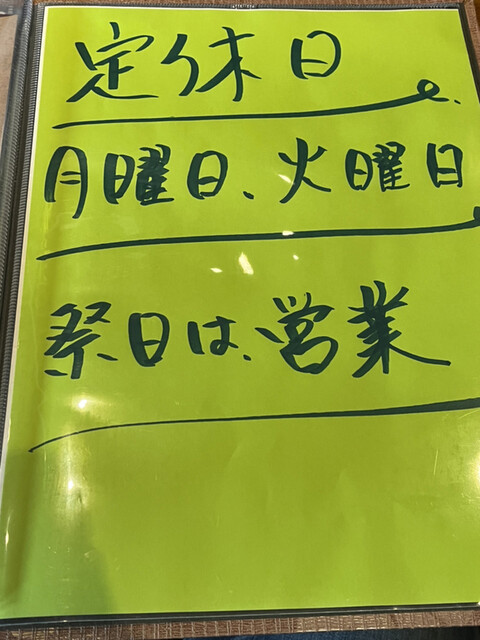 定休日
月曜日、火曜日
祭日は、営業